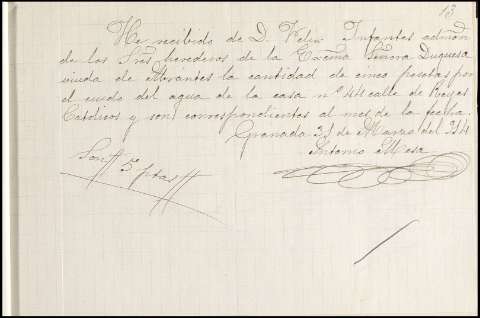 13
He recibido de D. Felix Infantes admon
de los Sres herederos de la Excma Señora Duquesa
viuda de Abrantes la cantidad de cinco pesetas por
el cuido del agua de la casa nº 44 calle de Reyes
Católicos y son correspondientes al mes de la fecha.
Granada 31 de Marzo del 914
Antonio Mesa
Son 5 ptas